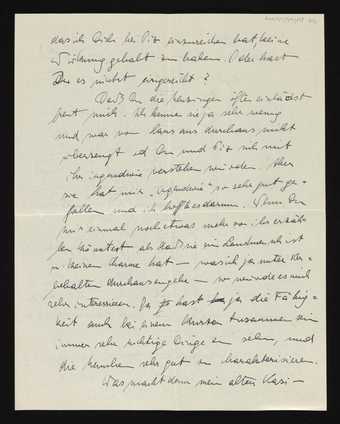 das ich Dich bei Piz einzureichen bat, keine
Wirkung gehabt zu haben. Oder hast
Du es nicht eingereicht?
Daß Du die öfter einlädst
freut mich. Ich kenne sie ja sehr wenig
und war von hans aus durchaus nicht
überzeugt ob Du und Piz mit
ihr irgendwie verstehen würden. Aber
sie hat mir "irgendwie" so sehr gut ge-
fallen und ich hoffte darum. Wenn Du
mir einmal noch etwas mehr von ihr erzäh-
len könntest als daß sie ein und
Charme hat – was ich ja unter Vor-
behalten durchaus – so würde es mich
sehr interessieren. Du hast ja die Fähig-
keit auch bei einem kurzen Zusammensein
immer sehr richtige Dinge zu sehen, und
die Menschen sehr gut zu charakterisieren.
Was macht denn mein alter Kasi –